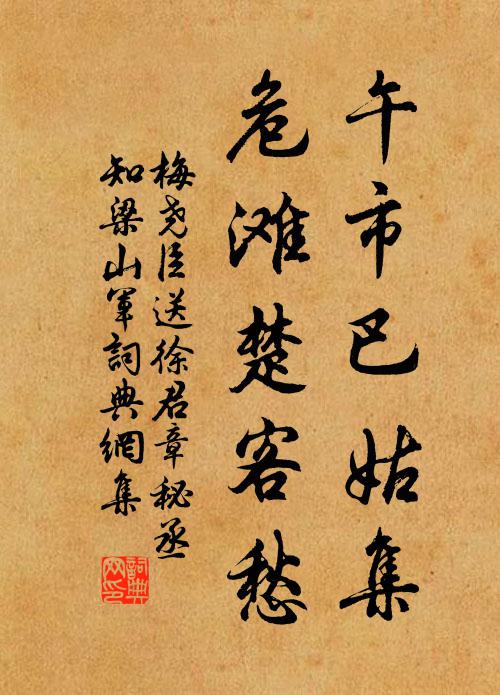 午市巴姑集
危滩楚客愁
梅尧臣送徐君章秘丞
知梁山军詞典網集
詞典
网印